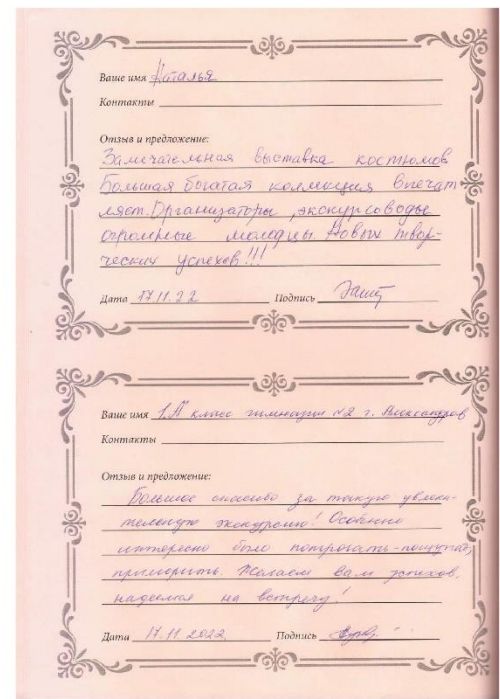 Ваше имя Наталья
Контакты
Отзыв и предложение:
Замечательная выставка костюмов
Большая богатая коллекция впечат
ляет. Организаторы, экскурсоводы
огромные молодцы. Новых твор-
ческих успехов!!!
Дата 17.11.22 Подпись
Ваше имя 1 "А" класс гимназии №2 г. Александров
Контакты
Отзыв и предложение:
Большое спасибо за такую увлека-
тельную экскурсию! Особенно
интересно было потрогать-пощупать,
примерить. Желаем вам успехов,
надеемся на встречу!
Дата 17.11.2022 Подпись